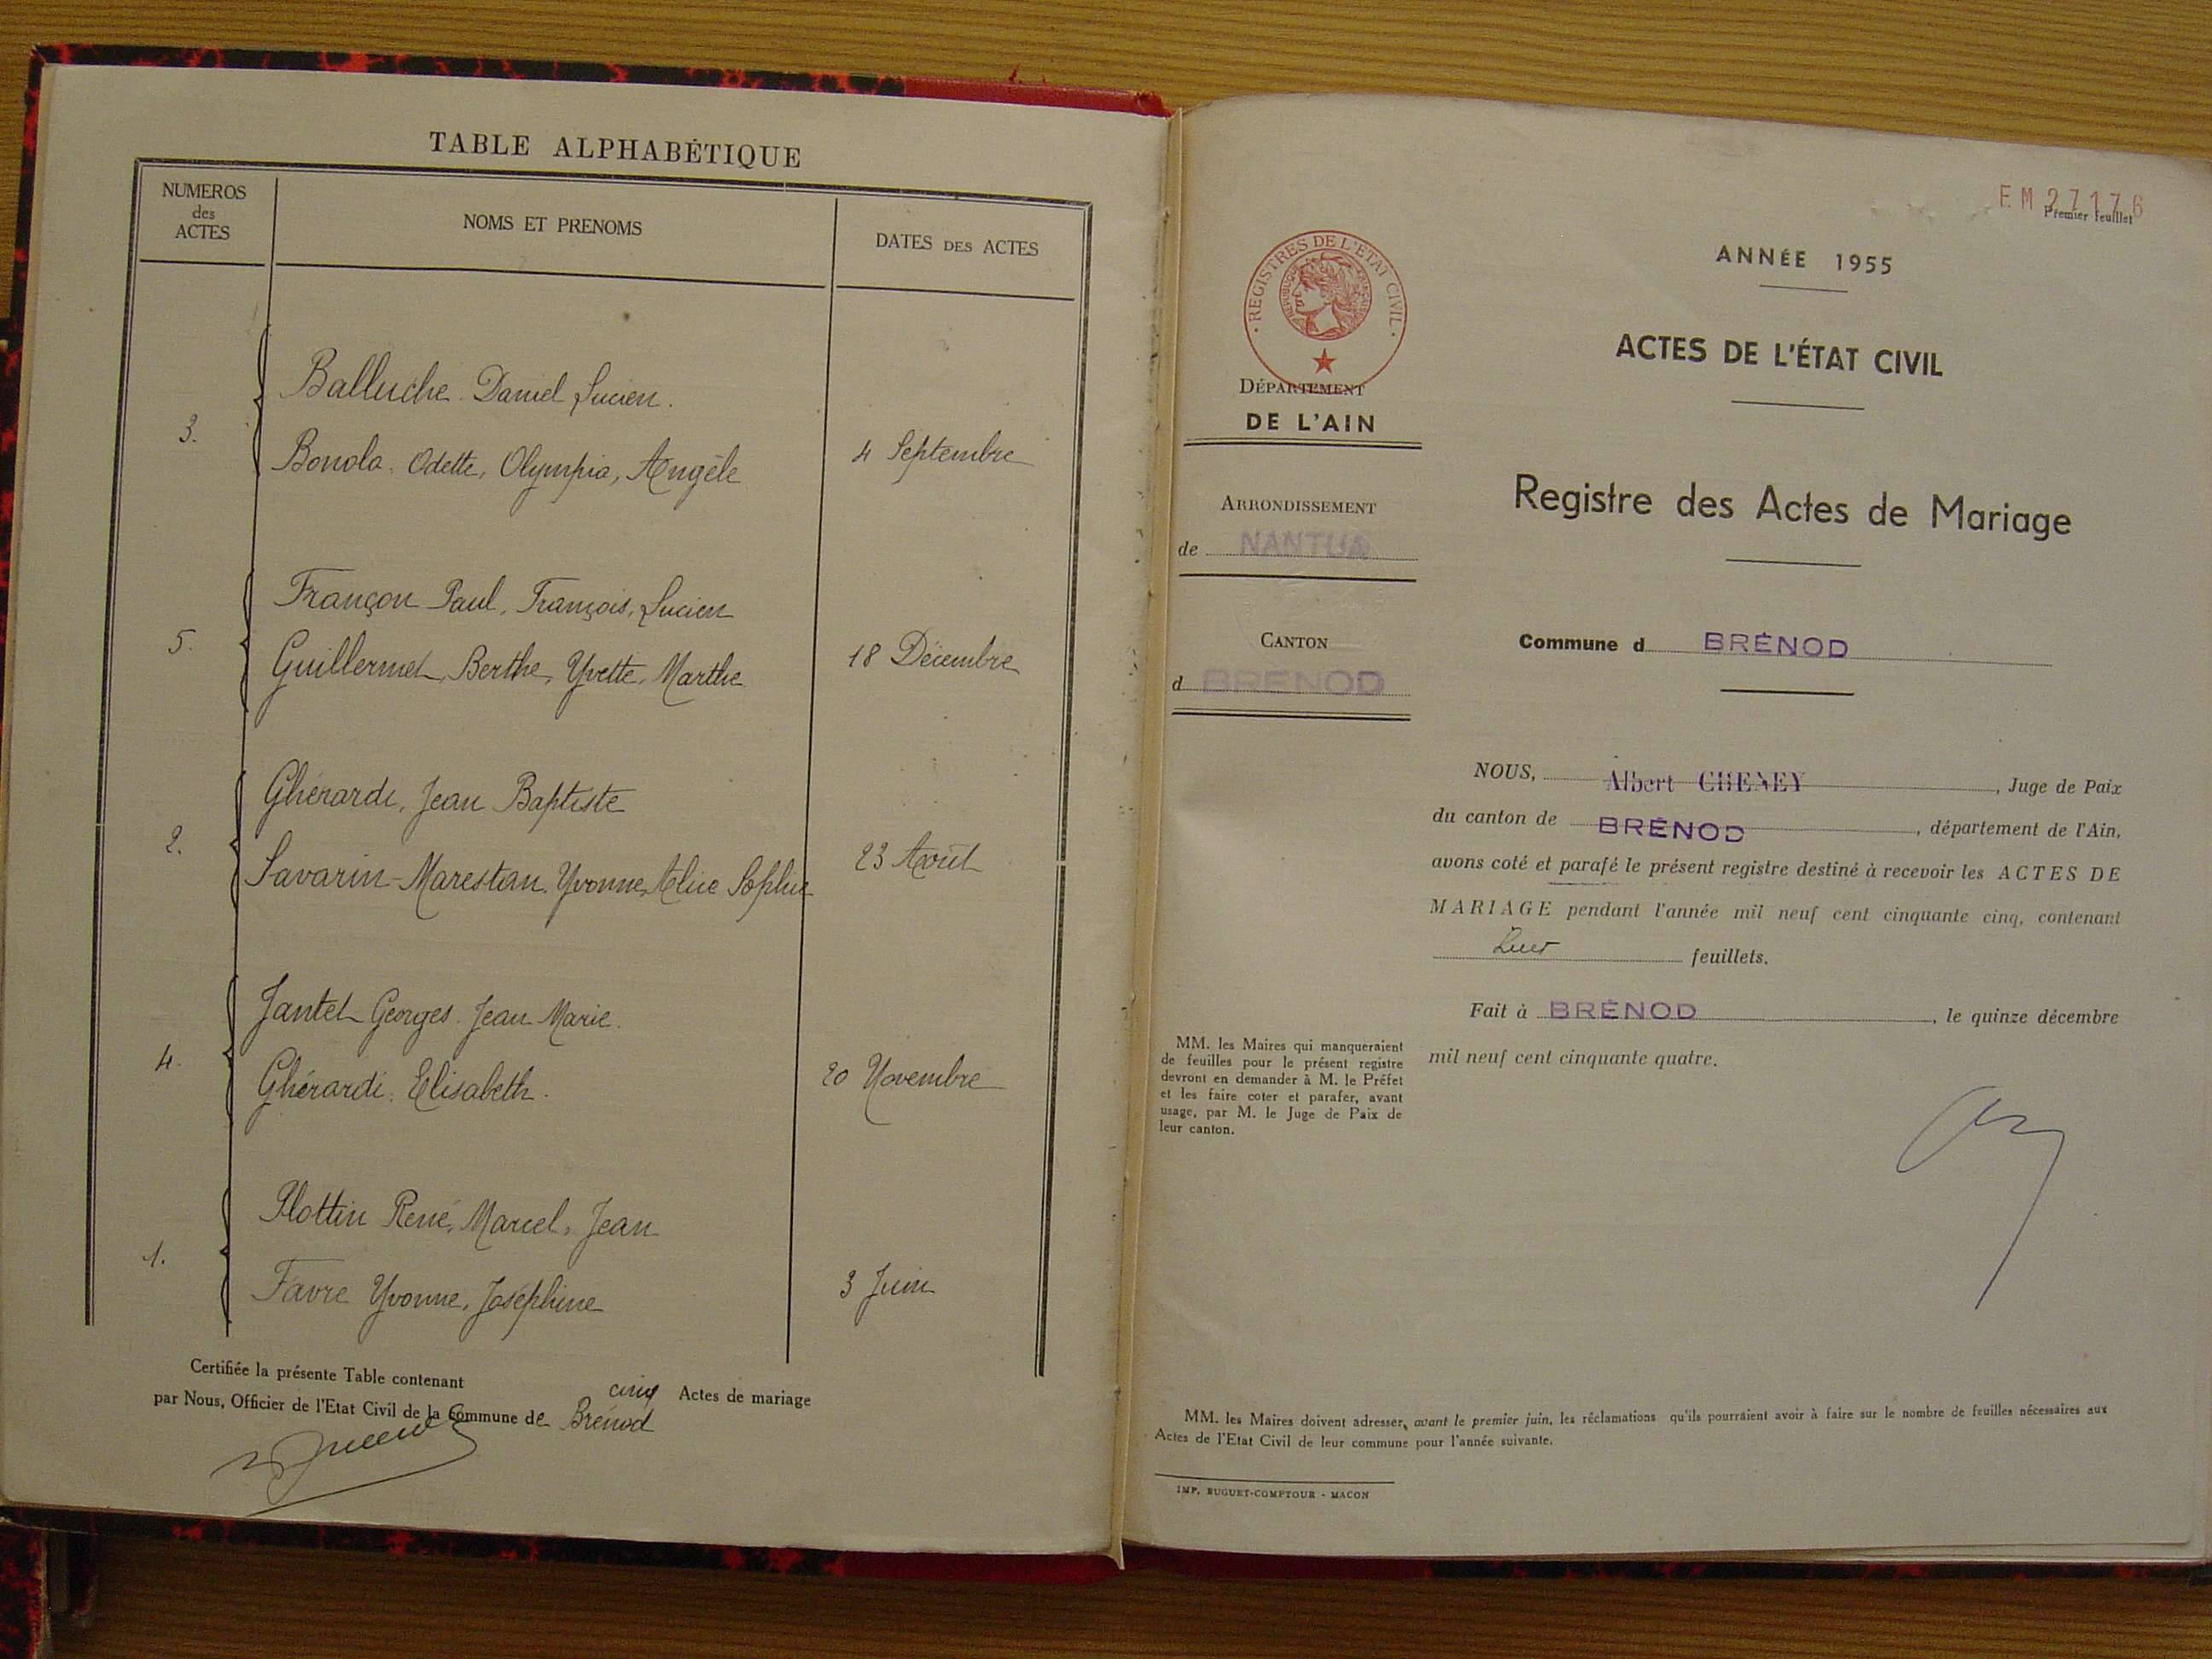 TABLE ALPHABÉTIQUE
NUMEROS
des
ACTES
NOMS ET PRENOMS
DATES DES ACTES
Balluche Daniel Lucien.
3.
Bonola. Odette, Olympia, Angèle
4 Septembre
Françon Paul, François, Lucien
5.
Guillermet, Berthe, Yvette, Marthe
18 Décembre
Ghérardi, Jean Baptiste
2.
Savarin-Marestan, Yvonne, Alice Sophie
23 Août
Jantet Georges. Jean Marie.
4.
Ghérardi. Elisabeth.
20 Novembre
Plottin René, Marcel, Jean
1.
Favre Yvonne, Joséphine
3 Juin
Certifiée la présente Table contenant cinq Actes de mariage
par Nous, Officier de l'Etat Civil de la Commune de Brénod
E M 27176
Premier feuillet
· REGISTRES DE L'ÉTAT CIVIL ·
DÉPARTEMENT
DE L'AIN
ARRONDISSEMENT
de NANTUA
CANTON
d BRENOD
MM. les Maires qui manqueraient
de feuilles pour le présent registre
devront en demander à M. le Préfet
et les faire coter et parafer, avant
usage, par M. le Juge de Paix de
leur canton.
ANNÉE 1955
ACTES DE L'ÉTAT CIVIL
Registre des Actes de Mariage
Commune d BRÉNOD
NOUS, Albert CHENEY, Juge de Paix
du canton de BRÉNOD, département de l'Ain,
avons coté et parafé le présent registre destiné à recevoir les ACTES DE
MARIAGE pendant l'année mil neuf cent cinquante cinq, contenant
feuillets.
Fait à BRÉNOD, le quinze décembre
mil neuf cent cinquante quatre.
MM. les Maires doivent adresser, avant le premier juin, les réclamations qu'ils pourraient avoir à faire sur le nombre de feuilles nécessaires aux
Actes de l'Etat Civil de leur commune pour l'année suivante.
IMP. BUGUET-COMPTOUR - MACON